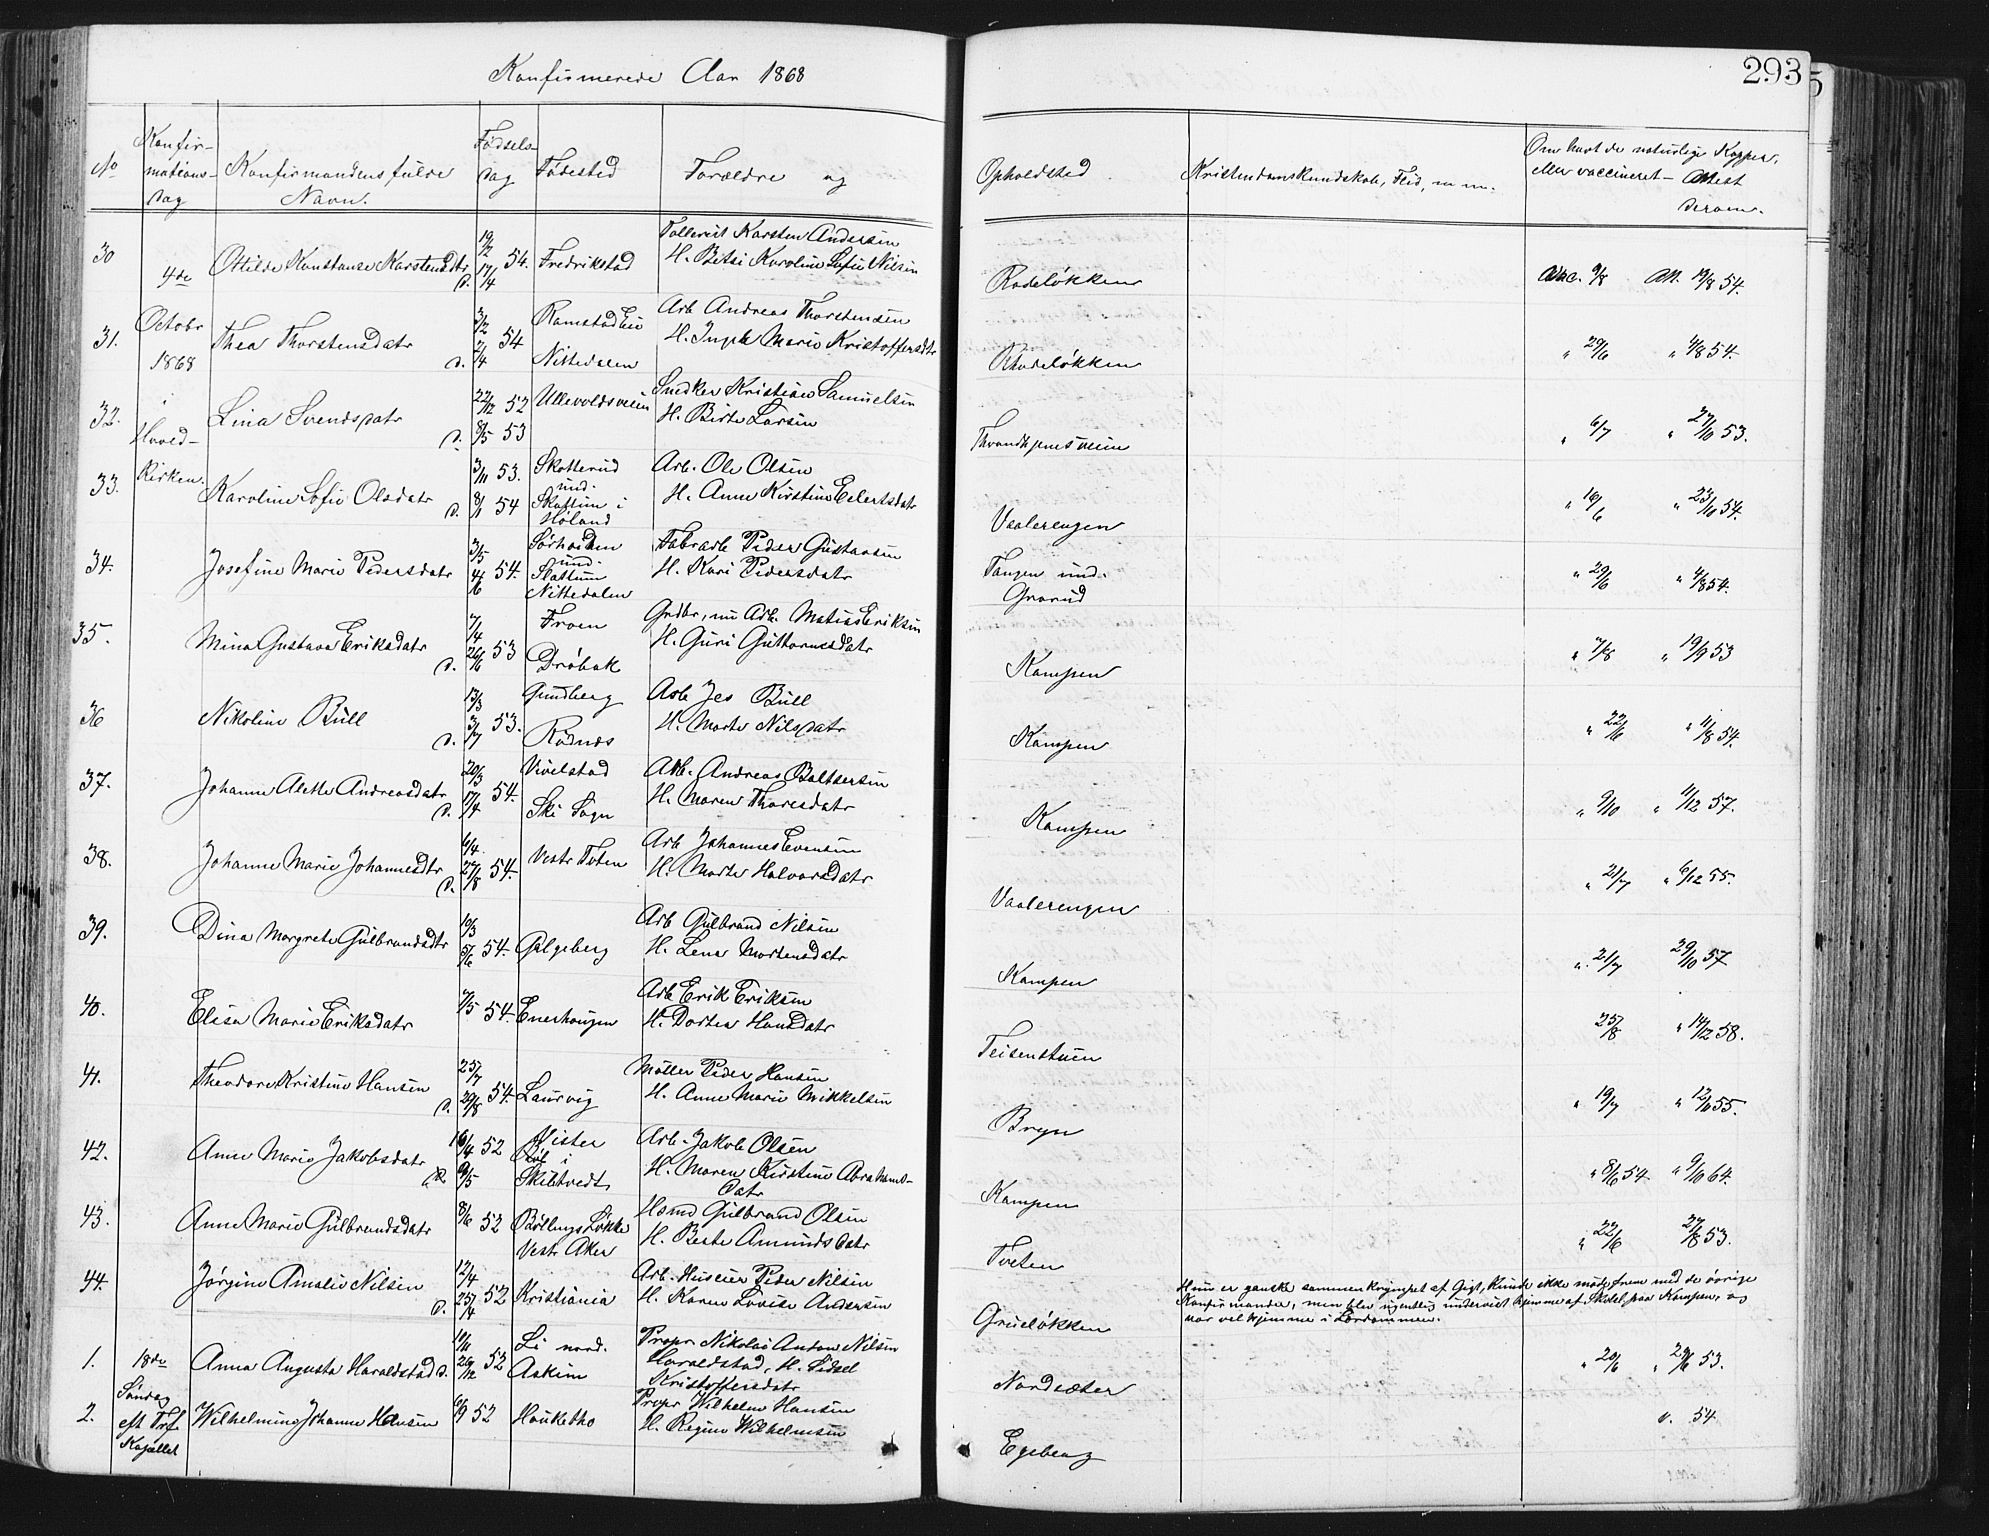 Konfirmerede Aar 1868
293
No
Konfir-
mations-
dag
Konfirmandens fulde
Navn.
Fødsels-
dag
Fødested
Forældre og
Opholdsted
Kristendomskundskab, Flid, m m.
Om havt de naturlige Kopper,
eller vaccineret - Attest
derom.
30
4de
Otilde Konstanse Karstensdtr
D.
19/2 17/4 54.
Fredrikstad
Tollerist Karsten Andersen
H. Betsi Karoline Sofie Nilsen
Rodeløkken
Vac. 9/8 Att. 19/8 54.
31.
Octobr
1868
Thea Thorstensdatr
D.
3/2 2/4 54
Ramstadeie
Nittedalen
Arb Andreas Thorstensen
H. Ingeb Marie Kristoffersdtr
Rhodeløkken
" 29/6 " 4/8 54.
32.
i
Hoved-
Lina Svendsdatr
D.
22/12 52
8/5 53
Ullevoldsveien
Snedker Kristian Samuelsen
H. Birte Larsen
Throndhjemsveien
" 6/7 " 27/10 53.
33.
Kirken.
Karoline Sofie Olsdatr
D.
3/11 53.
8/1 54
Skotterud
und.
Skoftum i
Høland
Arb. Ole Olsen
H. Anne Kirstine Eilertsdatr
Vaalerengen
" 16/6 " 23/10 54.
34.
Josefine Marie Pedersdatr
3/5 4/6 54.
Sørhaven
und.
Slattum
Nittedalen
Fabrarb Peder Gustavsen
H. Kari Pedersdatr
Tangen und.
Grorud
" 29/6 " 4/8 54.
35.
Mina Gustava Eriksdatr
D.
7/4 26/6 53
Froen
Drøbak
Grdbr, nu Arb. Matias Eriksen
H. Guri Guttormsdatr
Kampen
" 7/8 " 19/9 53
36
Nikoline Bull
D.
13/3 3/7 53.
Gundberg
Rødnes
Arb Jes Bull
H. Marte Nilsdatr
Kampen
" 22/6 " 11/8 54.
37.
Johanne Alette Andreasdatr
D.
20/3 17/4 54.
Vevelstad
Ski Sogn
Arb. Andreas Baltsersen
H. Maren Thoresdatr
Kampen
" 9/10 " 11/12 57.
38.
Johanne Marie Johannesdtr
D.
6/4. 27/8 54.
Vestr Toten
Arb Johannes Evensen
H. Marte Halvorsdatr
Vaalerengen
" 21/7 " 6/12 55.
39.
Dina Margrete Gulbrandsdtr
10/3 5/6 54.
Galgeberg
Arb Gulbrand Nilsen
H. Lena Mortensdatr
Kampen
" 21/7 29/10 57
40.
Elisa Marie Eriksdatr
7/5 54.
Enerhaugen
Arb Erik Eriksen
H. Dortea Hansdatr
Teisenstuen
25/8 " 14/12 58.
41.
Theodore Kristine Hansen
D.
25/7 29/8 54.
Laurvig
Møller Peder Hansen
H. Anne Marie Mikkelsen
Bryn
" 19/7 " 12/6 55.
42.
Anne Marie Jakobsdatr
D.
16/4 52
9/5
i
Skibtvedt
Arb. Jakob Olsen
H. Maren Kirstine Abrahams-
datr
Kampen
" 8/6 54 " 9/10 64.
43.
Anne Marie Gulbrandsdatr
8/6 52
Bøllings Løkke
Vestr Aker
Hsmd Gulbrand Olsen
H. Beate Amundsdatr
Tveten
" 22/6 27/8 53.
44.
Jørgine Amalie Nilsen
D.
12/4 25/4 52
Kristiania
Arb. Huseier Peder Nilsen
H. Karen Lovise Andersen
Grueløkken
Hun er ganske sammenkrympet af Gigt, kunde ikke møde frem med de øvrige
Konfirmander, men blev ugentlig undervist hjemme af Skolel. paa Kampen, og
var vel hjemme i Lærdommen.
1.
18de
Anna Augusta Haraldstad D.
10/11 26/12 52
Li nord.
Askim
Propr Nikolai Anton Nilsen
Haraldstad, H. Sidsel
Kristoffersdatr
Nordsæter
" 20/6 " 29/6 53.
Søndag
2.
eft Tref
Kapellet
Wilhelmine Johanne Hansen
6/9 52
Hauketho
Propr Wilhelm Hansen
H. Regine Wilhelmsen
Egeberg
v. 54